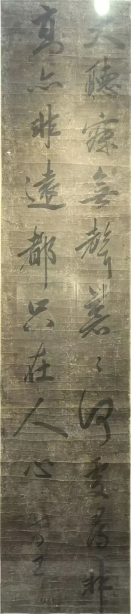 天聽寂無聲蒼蒼何處尋非
高亦非遠都只在人心